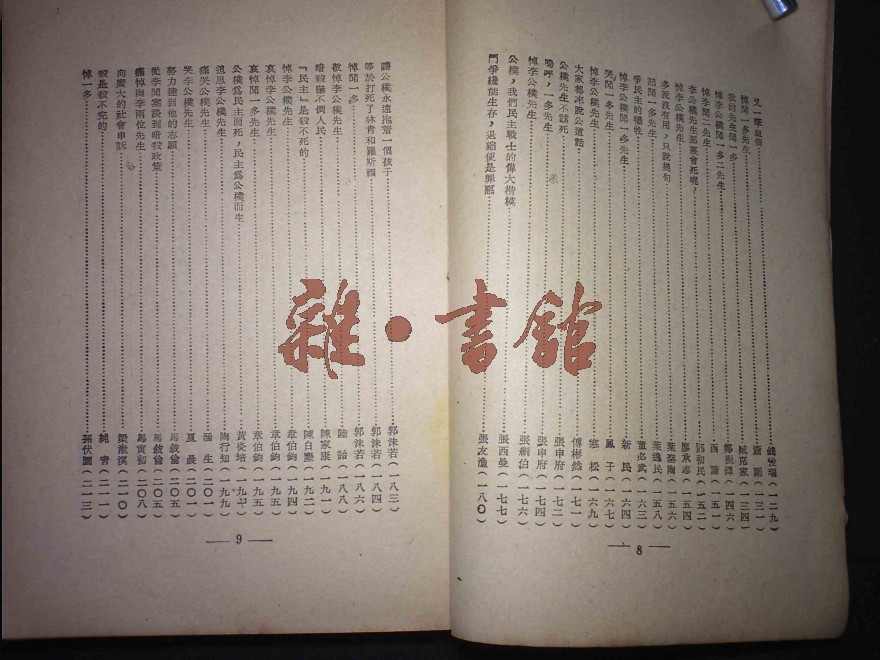 又一聲血債 錢俊瑞(一二九)
悼聞一多先生 蕭剛(一三一)
我的先生聞一多 臧克家(一三四)
悼李公樸聞一多二先生 鄭振鐸(一四六)
悼李聞二先生 西諦(一五一)
李公樸先生那裏會死呢? 鄧初民(一五二)
悼李公樸先生 廖承志(一五四)
多說沒有用,只說幾句 葉聖陶(一五六)
記聞一多先生 葉逸民(一五八)
爭民主的犧牲 董必武(一六三)
悼李公樸聞一多先生 新民(一六四)
哭聞一多先生 鳳子(一六七)
悼李公樸先生 寒松(一六九)
大家都來說公道話 傅彬然(一七一)
公樸先生不該死 張申府(一七二)
嗚呼,一多先生 張申府(一七四)
悼李公樸先生 張絅伯(一七六)
公樸,我們民主戰士的偉大楷模 張西曼(一七七)
鬥爭纔能生存,退縮便是罪惡 張友漁(一八〇)
— 8 —
讓公樸永遠抱着一個孩子 郭沫若(一八三)
等於打死了林肯和羅斯福 郭沫若(一八四)
悼聞一多 郭沫若(一八六)
敬悼李公樸先生 陸詒(一八八)
暗殺嚇不倒人民 陳家康(一九一)
『民主』是殺不死的 陳白塵(一九二)
悼李公樸先生 章伯鈞(一九四)
哀悼聞一多先生 章伯鈞(一九五)
哀悼李公樸先生 章伯鈞(一九五)
公樸爲民主而死,民主爲公樸而生 黃炎培(一九七)
追思李公樸先生 陶行知(一九九)
痛哭李公樸先生 韜生(二〇一)
哭李公樸先生 夏晨(二〇一)
努力達到他的志願 馬敘倫(二〇五)
從李聞案談到暗殺政策 馬敘倫(二〇五)
痛悼聞李兩位先生 馬寅初(二〇八)
向廣大的社會申訴 梁漱溟(二一〇)
殺是殺不完的 純青(二一一)
悼一多 孫伏園(二一三)
— 9 —
雜·書館